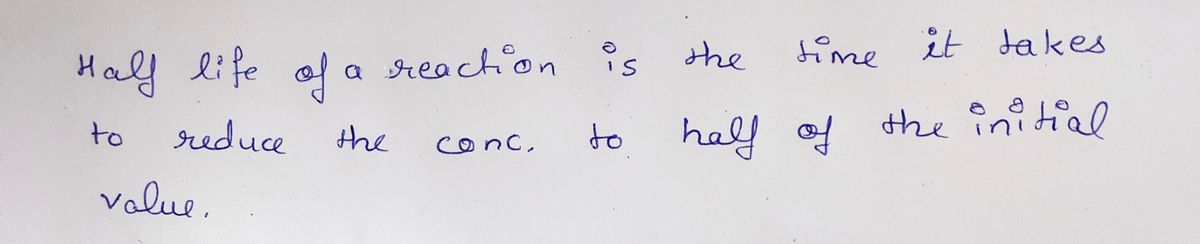 Half life of a reaction is the time it takes
to reduce the conc. to half of the initial
value.